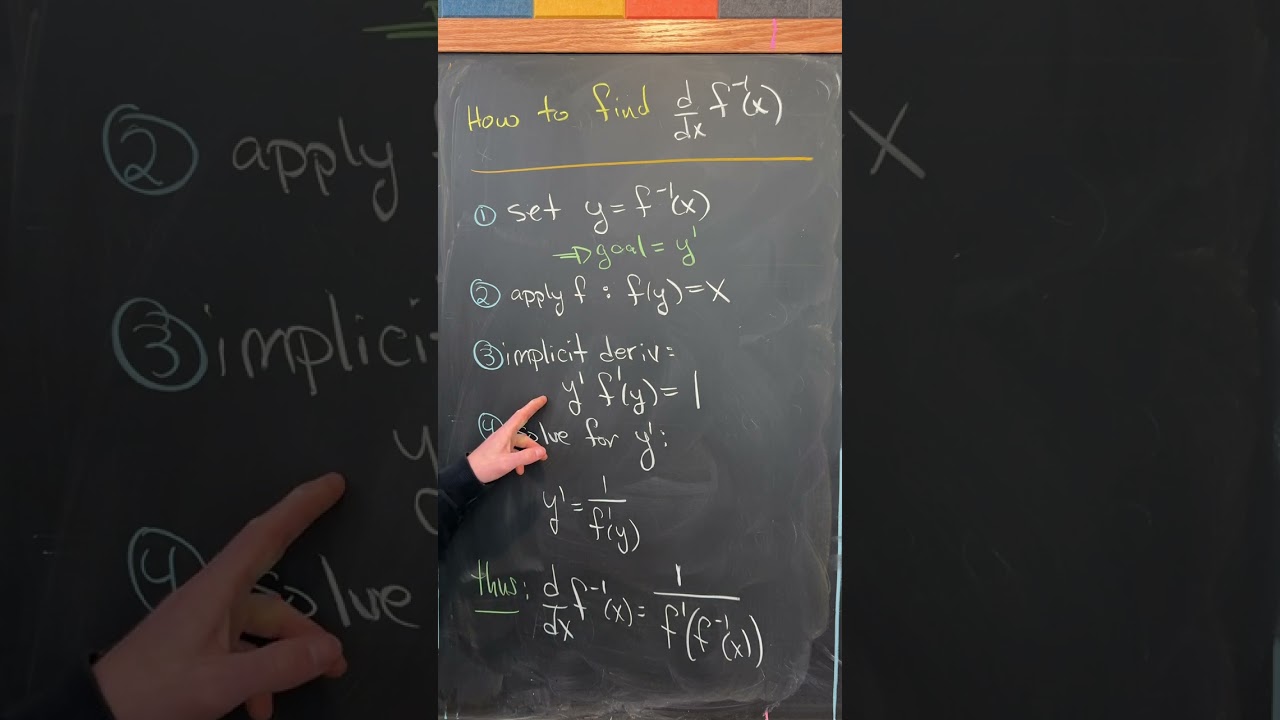 How to find d/dx f⁻¹(x)
① set y = f⁻¹(x)
⇒ goal = y'
② apply f : f(y) = x
③ implicit deriv:
y' f'(y) = 1
④ solve for y':
y' = 1/f'(y)
thus: d/dx f⁻¹(x) = 1/f'(f⁻¹(x))